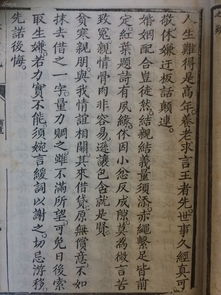 人生難得是高年養老求言王者先世事久經真可
敬休嫌迂板話顛連
婚姻配合豈徒然結親結義量須添赤繩繫足皆前
定紅葉題詩有夙緣休因小忿反成隙莫為微言苦
致冤親情骨肉非容易遜讓包含就是賢
貧寒親朋與我情誼相關其來借貸原無償意不如
抹去借之一字量力賙之雖不滿所望可免日後索
取生嫌若力實不能須婉言緩詞以謝之切忌游移
先諾後悔